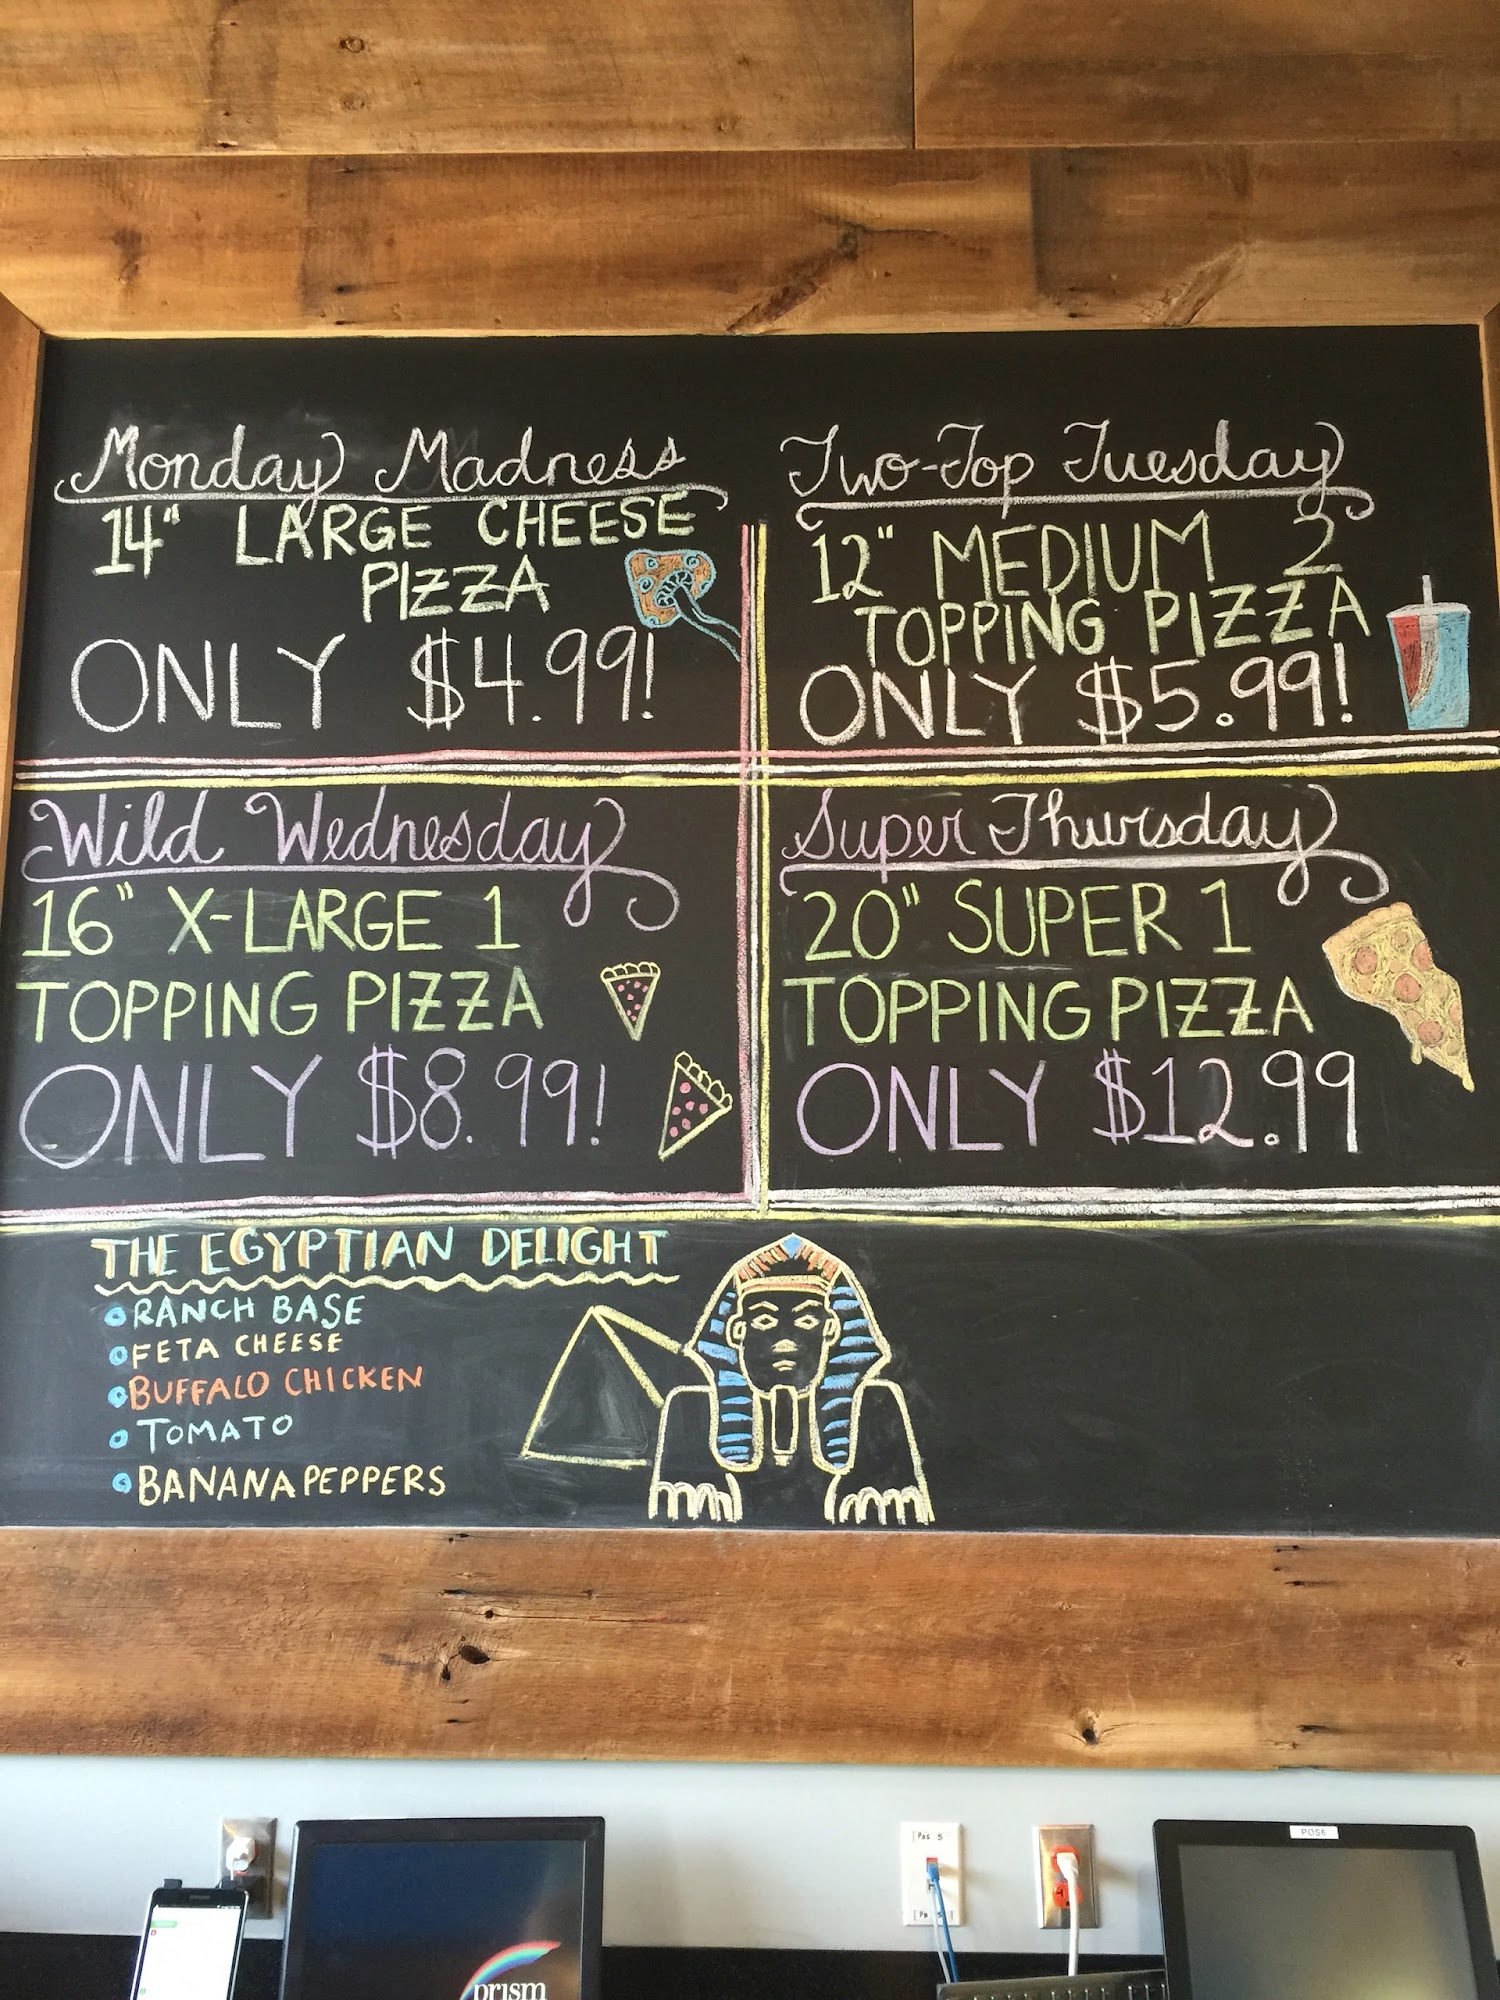 Monday Madness
14" LARGE CHEESE
PIZZA
ONLY $4.99!
Two-Top Tuesday
12" MEDIUM 2
TOPPING PIZZA
ONLY $5.99!
Wild Wednesday
16" X-LARGE 1
TOPPING PIZZA
ONLY $8.99!
Super Thursday
20" SUPER 1
TOPPING PIZZA
ONLY $12.99
THE EGYPTIAN DELIGHT
RANCH BASE
FETA CHEESE
BUFFALO CHICKEN
TOMATO
BANANA PEPPERS
Pos 5
POS6
prism